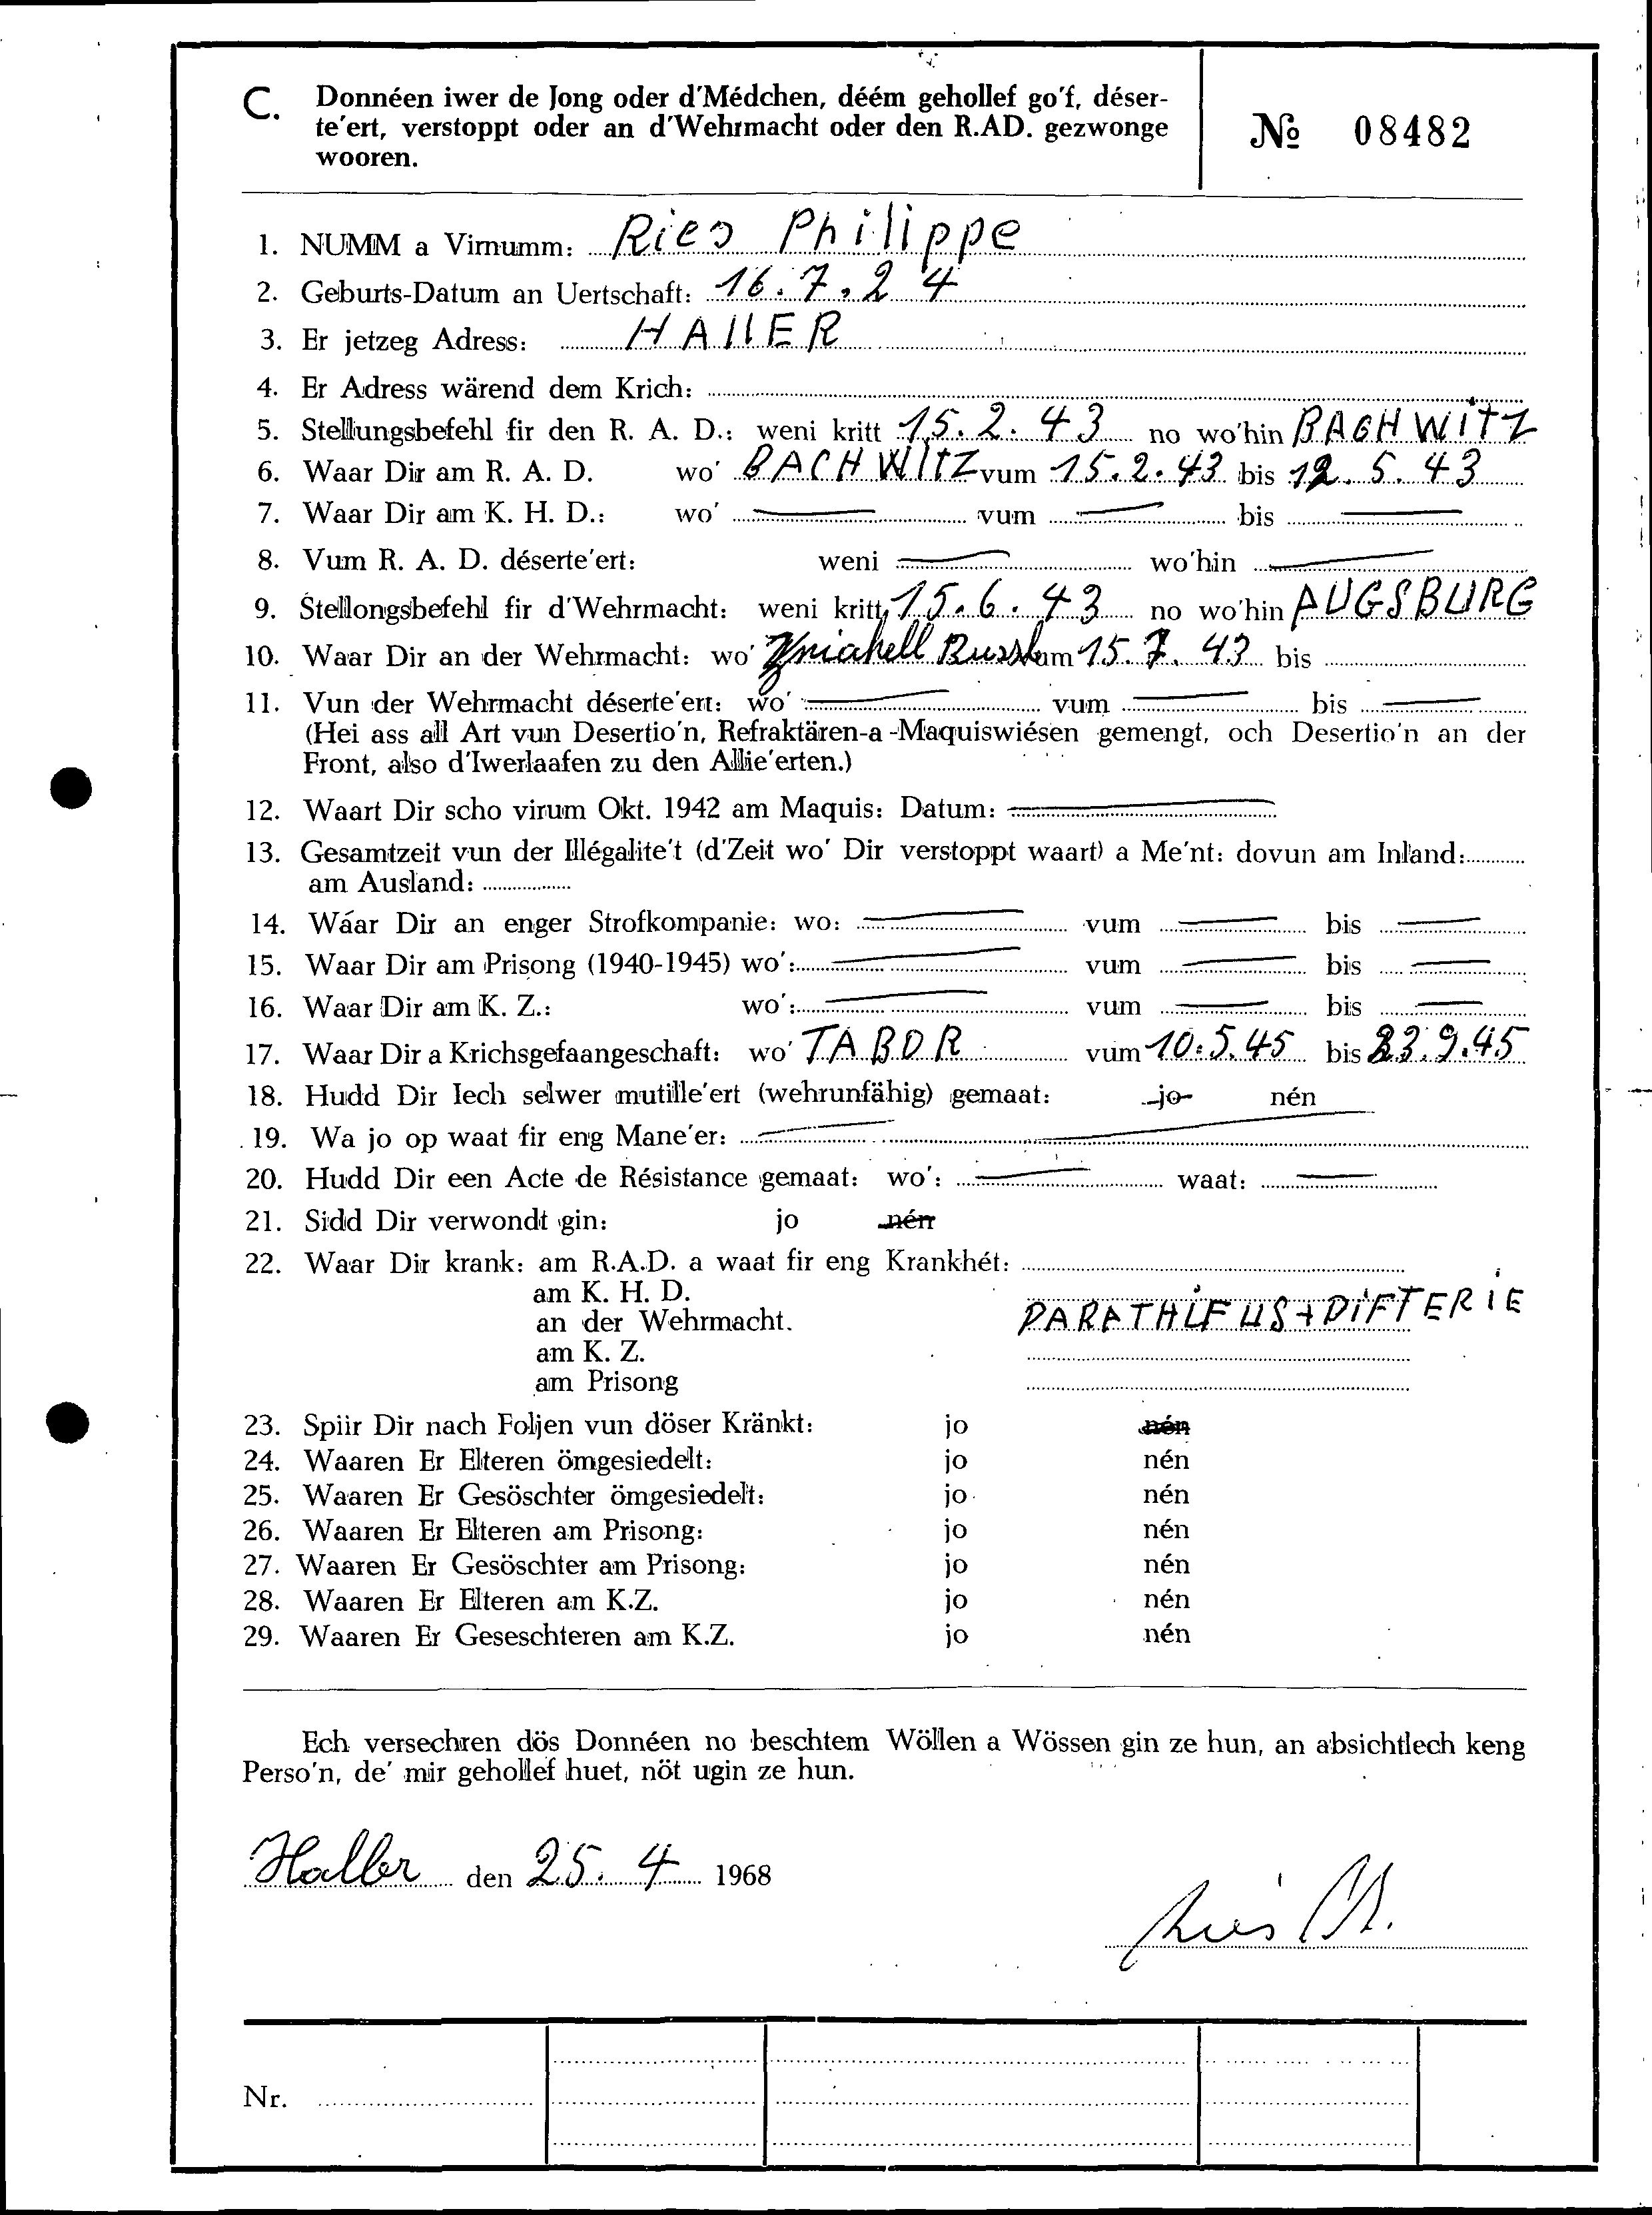 C. Donnéen iwer de Jong oder d'Médchen, déém gehollef go'f, déser-
te'ert, verstoppt oder an d'Wehrmacht oder den R.AD. gezwonge
wooren.
№ 08482
1. NUMM a Virnumm: Ries Philippe
2. Geburts-Datum an Uertschaft: 16.7.24
3. Er jetzeg Adress: HAllER
4. Er Adress wärend dem Krich:
5. Stellungsbefehl fir den R. A. D.: weni kritt 15.2.43 no wo'hin BACHWiTZ
6. Waar Dir am R. A. D. wo' BACHWITZ vum 15.2.43 bis 12.5.43
7. Waar Dir am K. H. D.: wo' — vum — bis —
8. Vum R. A. D. déserte'ert: weni — wo'hin —
9. Stellongsbefehl fir d'Wehrmacht: weni kritt 15.6.43 no wo'hin AUGSBURG
10. Waar Dir an der Wehrmacht: wo' vum 15.7.43 bis
11. Vun der Wehrmacht déserte'ert: wo' — vum — bis —
(Hei ass all Art vun Desertio'n, Refraktären-a-Maquiswiésen gemengt, och Desertio'n an der
Front, also d'Iwerlaafen zu den Allie'erten.)
12. Waart Dir scho virum Okt. 1942 am Maquis: Datum: —
13. Gesamtzeit vun der Illégalite't (d'Zeit wo' Dir verstoppt waart) a Me'nt: dovun am Inland:
am Ausland:
14. Waar Dir an enger Strofkompanie: wo: — vum — bis —
15. Waar Dir am Prisong (1940-1945) wo': — vum — bis —
16. Waar Dir am K. Z.: wo': — vum — bis —
17. Waar Dir a Krichsgefaangeschaft: wo' TABOR vum 10.5.45 bis 23.9.45
18. Hudd Dir Iech selwer mutille'ert (wehrunfähig) gemaat: jo nén
19. Wa jo op waat fir eng Mane'er: —
20. Hudd Dir een Acte de Résistance gemaat: wo': — waat: —
21. Sidd Dir verwondt gin: jo nén
22. Waar Dir krank: am R.A.D. a waat fir eng Krankhét:
am K. H. D.
an der Wehrmacht. PARATHiFUS + DiFTERiE
am K. Z.
am Prisong
23. Spiir Dir nach Foljen vun döser Kränkt: jo nén
24. Waaren Er Elteren ömgesiedelt: jo nén
25. Waaren Er Gesöschter ömgesiedelt: jo nén
26. Waaren Er Elteren am Prisong: jo nén
27. Waaren Er Gesöschter am Prisong: jo nén
28. Waaren Er Elteren am K.Z. jo nén
29. Waaren Er Geseschteren am K.Z. jo nén
Ech versechren dös Donnéen no beschtem Wöllen a Wössen gin ze hun, an absichtlech keng
Perso'n, de' mir gehollef huet, nöt ugin ze hun.
Haller den 25. 4 1968
Ries Ph.
Nr.